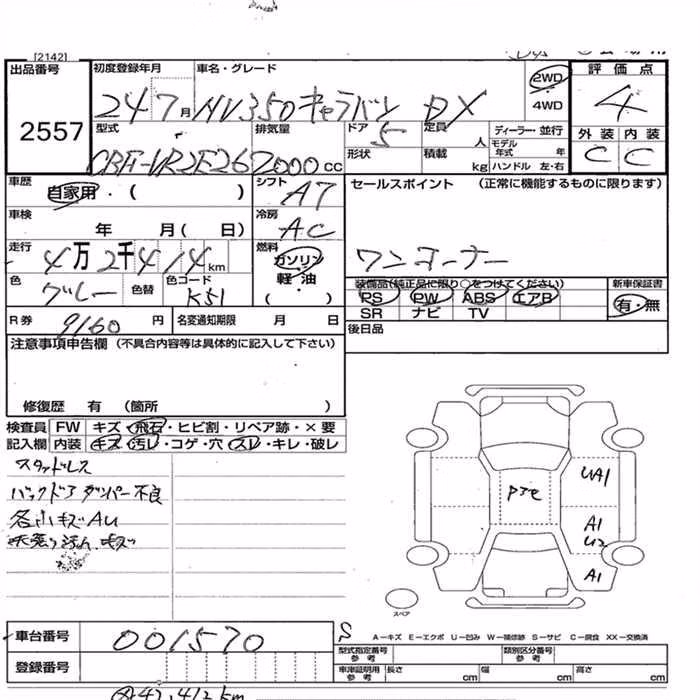 [2142]
出品番号 初度登録年月 車名・グレード 2WD 評価点
2557 24 7月 NV350キャラバン DX 4WD 4
型式 排気量 ドア 定員 ディーラー・並行 外装 内装
CBF-VR2E26 2000cc 5 人 モデル年式 年 C C
形状 積載 kg ハンドル 左・右
車歴 自家用・( ) シフト A7 セールスポイント (正常に機能するものに限ります)
車検 年 月( 日) 冷房 AC
走行 4万2千414km 燃料 ガソリン 軽油 ( ) ワンオーナー
色 グレー 色替 色コード K51 装備品(純正品に限り○をつけてください) 新車保証書
PS PW ABS エアB 有・無
R券 9160円 名変通知期限 月 日 SR ナビ TV
注意事項申告欄 (不具合内容等は具体的に記入して下さい) 後日品
修復歴 有 (箇所 )
検査員 FW キズ・飛石・ヒビ割・リペア跡・×要
記入欄 内装 キズ・汚レ・コゲ・穴・スレ・キレ・破レ
スタッドレス
バックドアダンパー不良
各小キズAU
UA1
A1
U2
A1
スペア
A−キズ E−エクボ U−凹み W−補修跡 S−サビ C−腐食 XX−交換済
車台番号 001570 S 型式指定番号 参考 類別区分番号 参考
登録番号 車庫証明用 参考 長さ cm 幅 cm 高さ cm
42,412km